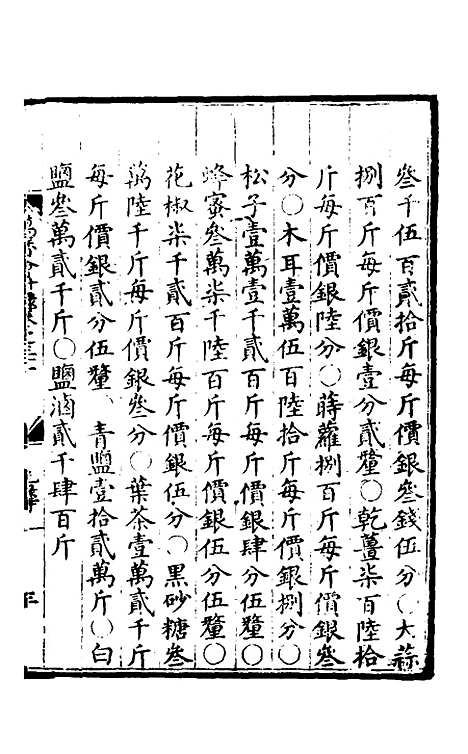 叄千伍百貳拾斤每斤價銀叄錢伍分○大蒜
捌百斤每斤價銀壹分貳釐○乾薑柒百陸拾
斤每斤價銀陸分○蒔蘿捌百斤每斤價銀叄
分○木耳壹萬伍百陸拾斤每斤價銀捌分○
松子壹萬壹千貳百斤每斤價銀肆分伍釐○
蜂蜜叄萬柒千陸百斤每斤價銀伍分伍釐○
花椒柒千貳百斤每斤價銀伍分○黑砂糖叄
萬陸千斤每斤價銀叄分○葉茶壹萬貳千斤
每斤價銀貳分伍釐　青鹽壹拾貳萬斤○白
鹽叄萬貳千斤○鹽滷貳千肆百斤